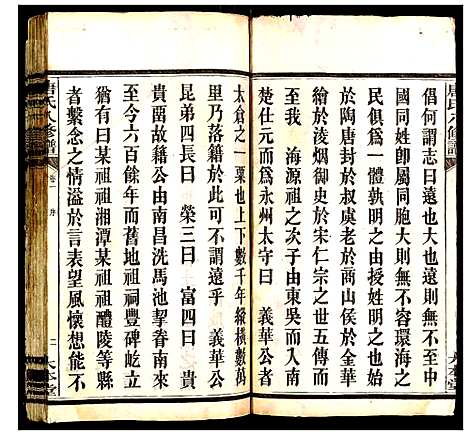 倡何謂志曰遠也大也遠則
國同姓卽屬同胞大共容環海之
民俱爲一體孰明之由唐始也
於陶唐封於叔虞老於商山侯於金華
繪於淩烟御史於宋仁宗之世五傳而
至我 海源祖之次子由東吳而
楚仕元而爲永州太守曰 義華公者
太倉之一粟也上下數千年縱橫數萬
里乃落籍於此可不謂遠乎 義華公
昆弟四長曰 榮三曰 富四曰 貴
貴茵故籍公由南昌洗馬池挈眷南來
至今六百餘年而舊地祖祠豐碑屹立
猶有曰某祖祖湘潭某祖祖醴陵等縣
者繫念之情溢於言表望風懷想能不
唐氏八修譜
卷二
序
二
大本堂